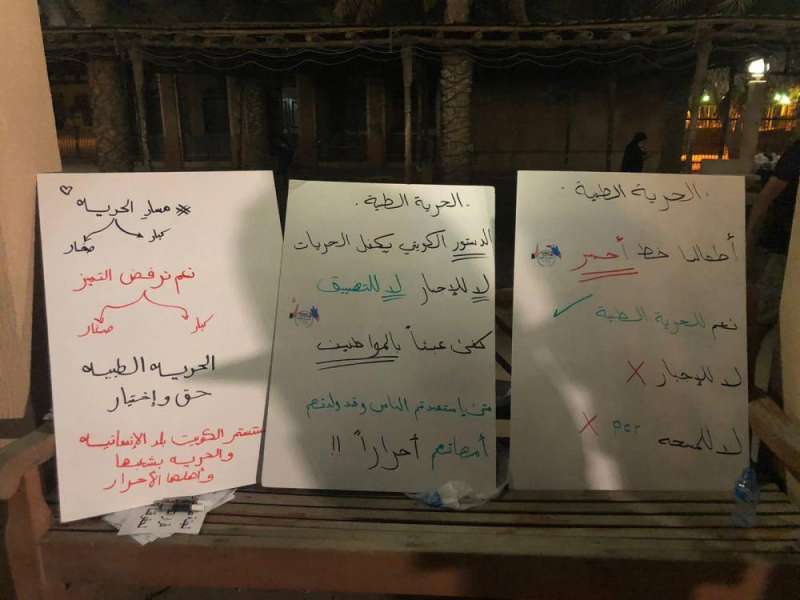 الحرية الطبية
أطفالنا خط أحمر
نعم للحرية الطبية ✓
لا للإجبار X
لا للمسحه pcr X
الحرية الطبية
الدستور الكويتي يكفل الحريات
لا للإجبار لا للتضييق
كفى عبثاً بالمواطنين
متى استعبدتم الناس وقد ولدتهم
أمهاتهم أحراراً !!
* معاً الحريه
كبار صغار
نعم نرفض التميز
كبار صغار
الحريه الطبيه
حق وإختيار
ستستمر الكويت بلد الإنسانيه
والحريه بشعبها
وأهلها الأحرار